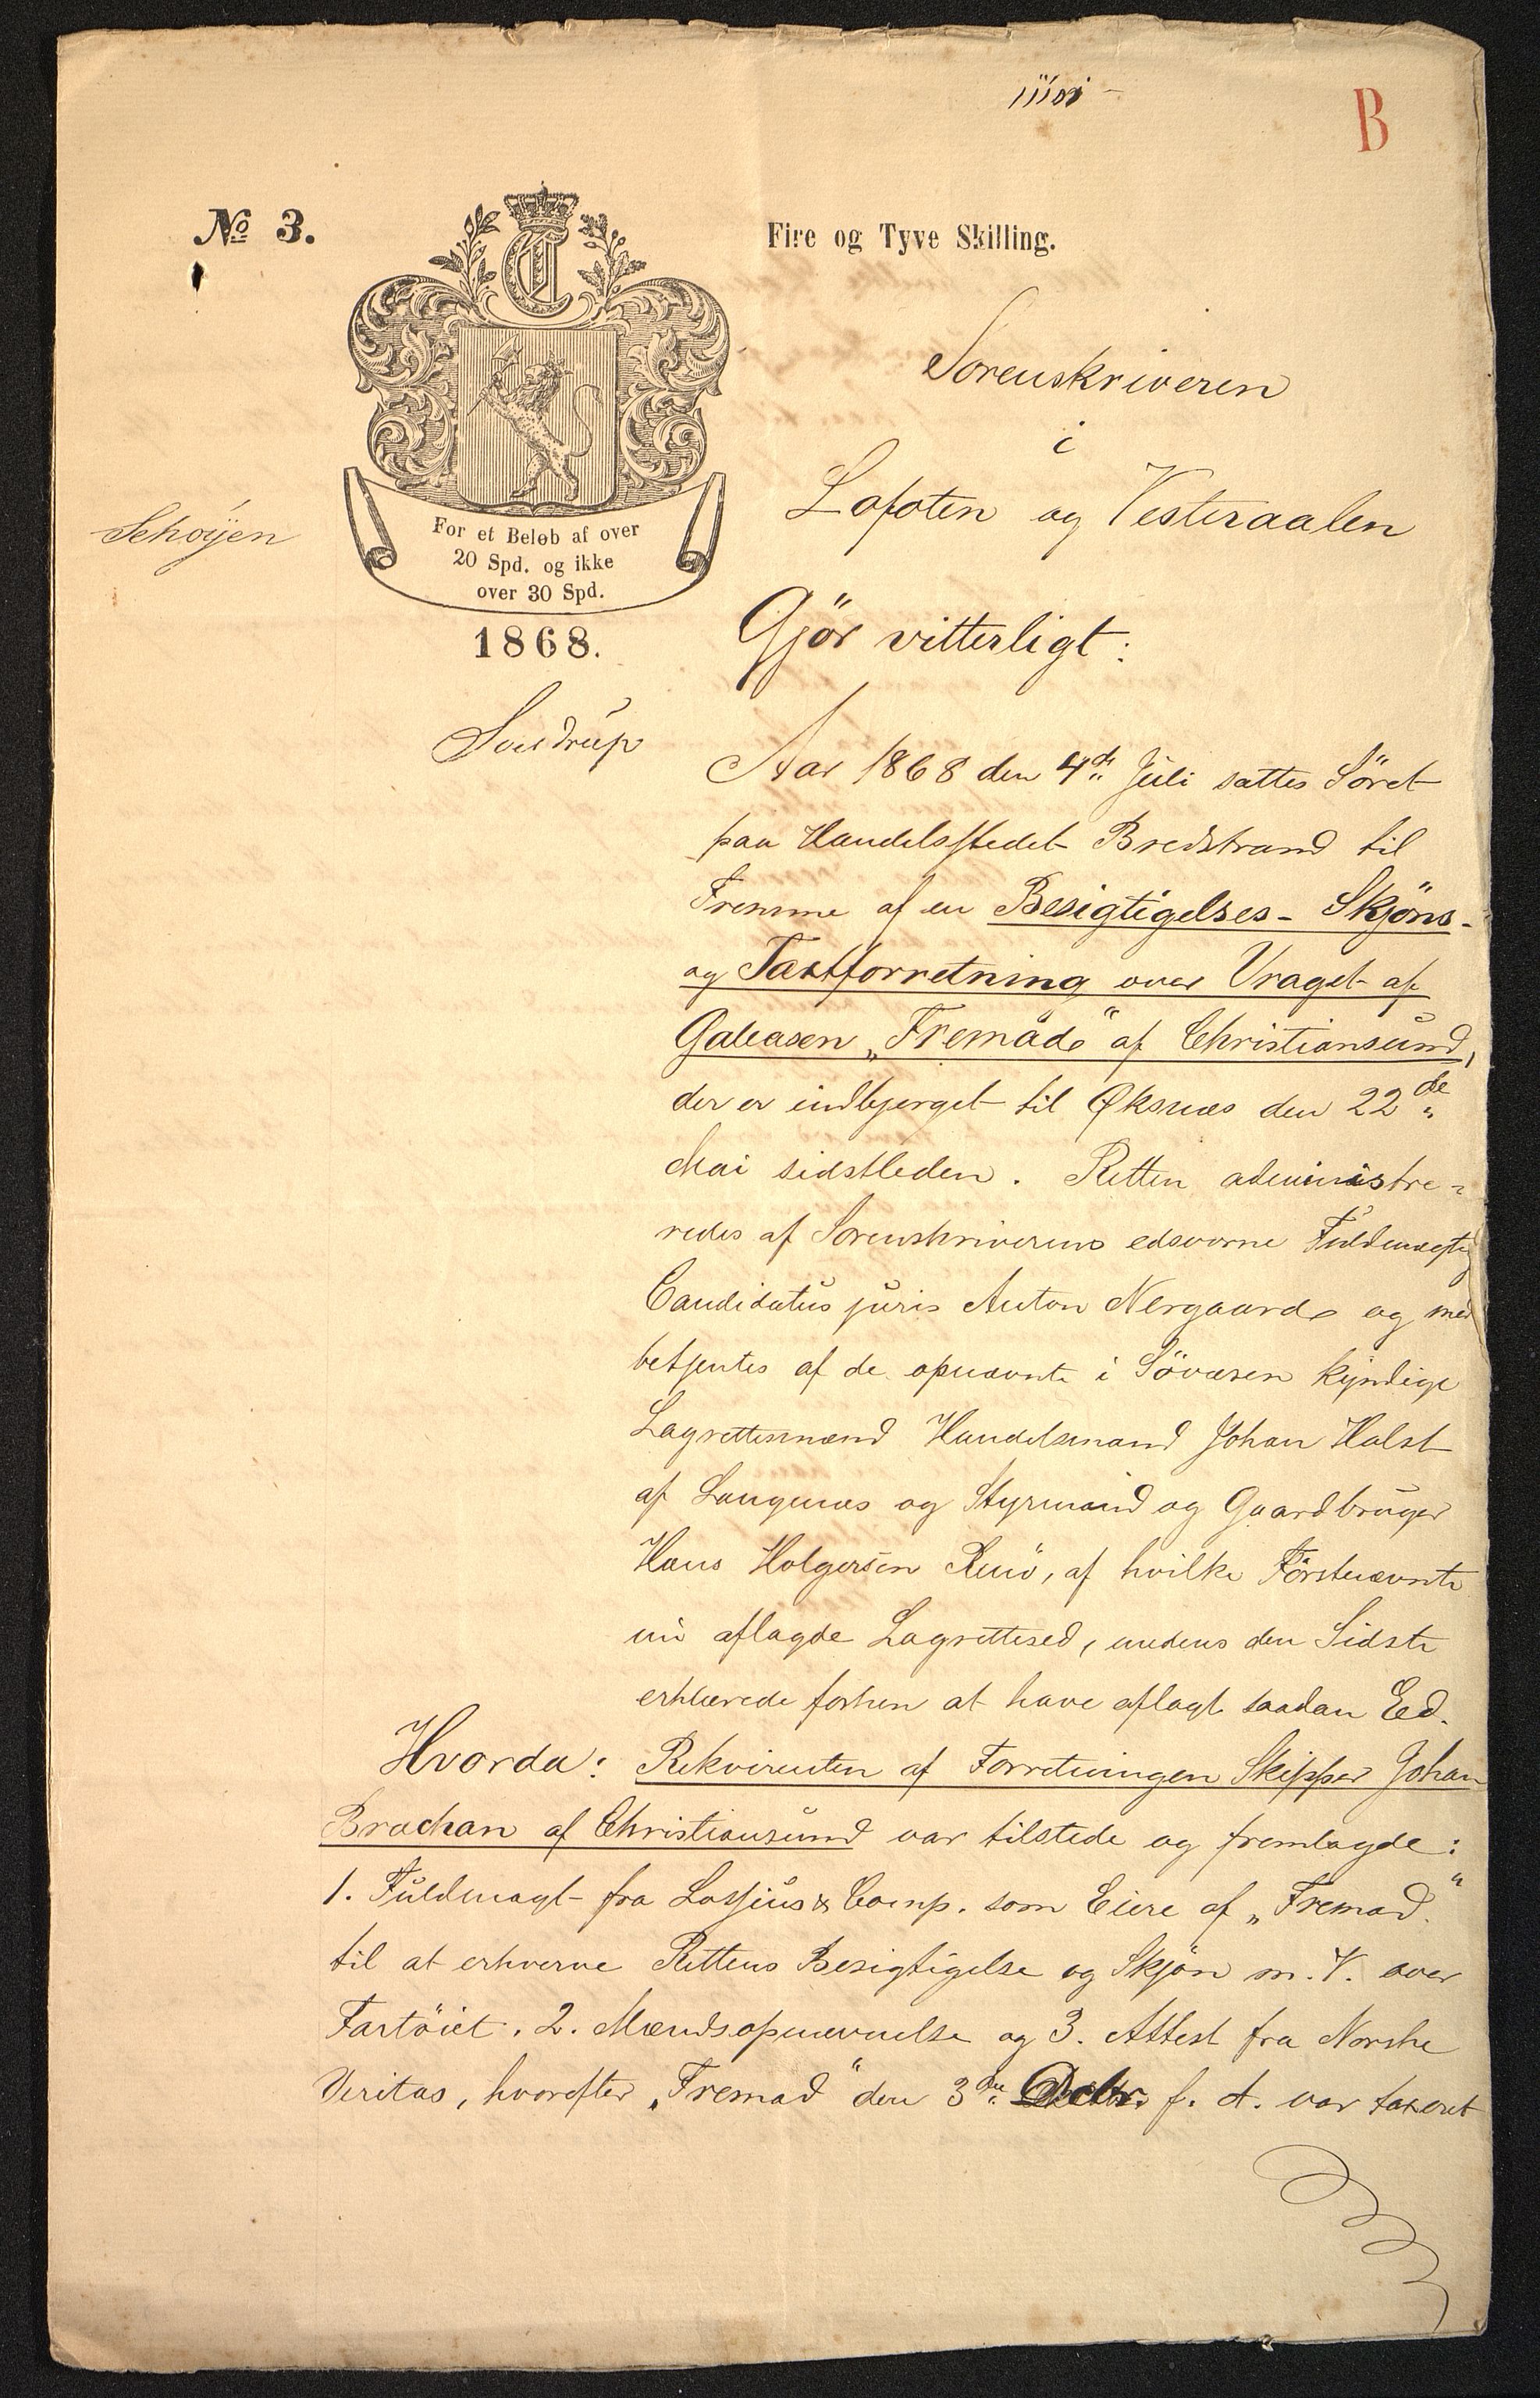 B
No 3.
Fire og Tyve Skilling.
Sorenskriveren
i
Lofoten og Vesteraalen
Schøyen
For et Beløb af over
20 Spd. og ikke
over 30 Spd.
1868.
Gjör vitterligt:
Aar 1868 den 4de Juli sattes Söret
paa Handelsstedet Bredstrand til
Fremme af en Besigtigelses- Skjöns-
og Taxtforretning over Vraget af
Galeasen „Fremad“ af Christiansund,
der er indbjerget til Øksnæs den 22de
Mai sidstleden. Retten administre-
redes af Sorenskriverens edsvorne Fuldmægtig
Candidatus juris Anton Nergaard og med
betjentes af de opnævnte i Sövæsen kyndige
Lagrettesmænd Handelsmand Johan Halst
af Langenæs og Styrmand og Gaardbruger
Hans Holgersen, af hvilke Förstnævnte
nu aflagde Lagrettesed, medens den Sidste
erklærede forhen at have aflagt saadan Eed.
Hvorda: Rekvirenten af Forretningen Skipper Johan
Brochan af Christiansund var tilstede og fremlagde:
1. Fuldmagt fra Lossius & Comp. som Eiere af „Fremad“
til at erhverve Rettens Besigtigelse og Skjön m. V. over
Fartöiet. 2. Mændsopnævnelse og 3. Attest fra Norske
Veritas, hvorefter „Fremad“ den 3die f. A. var taxeret